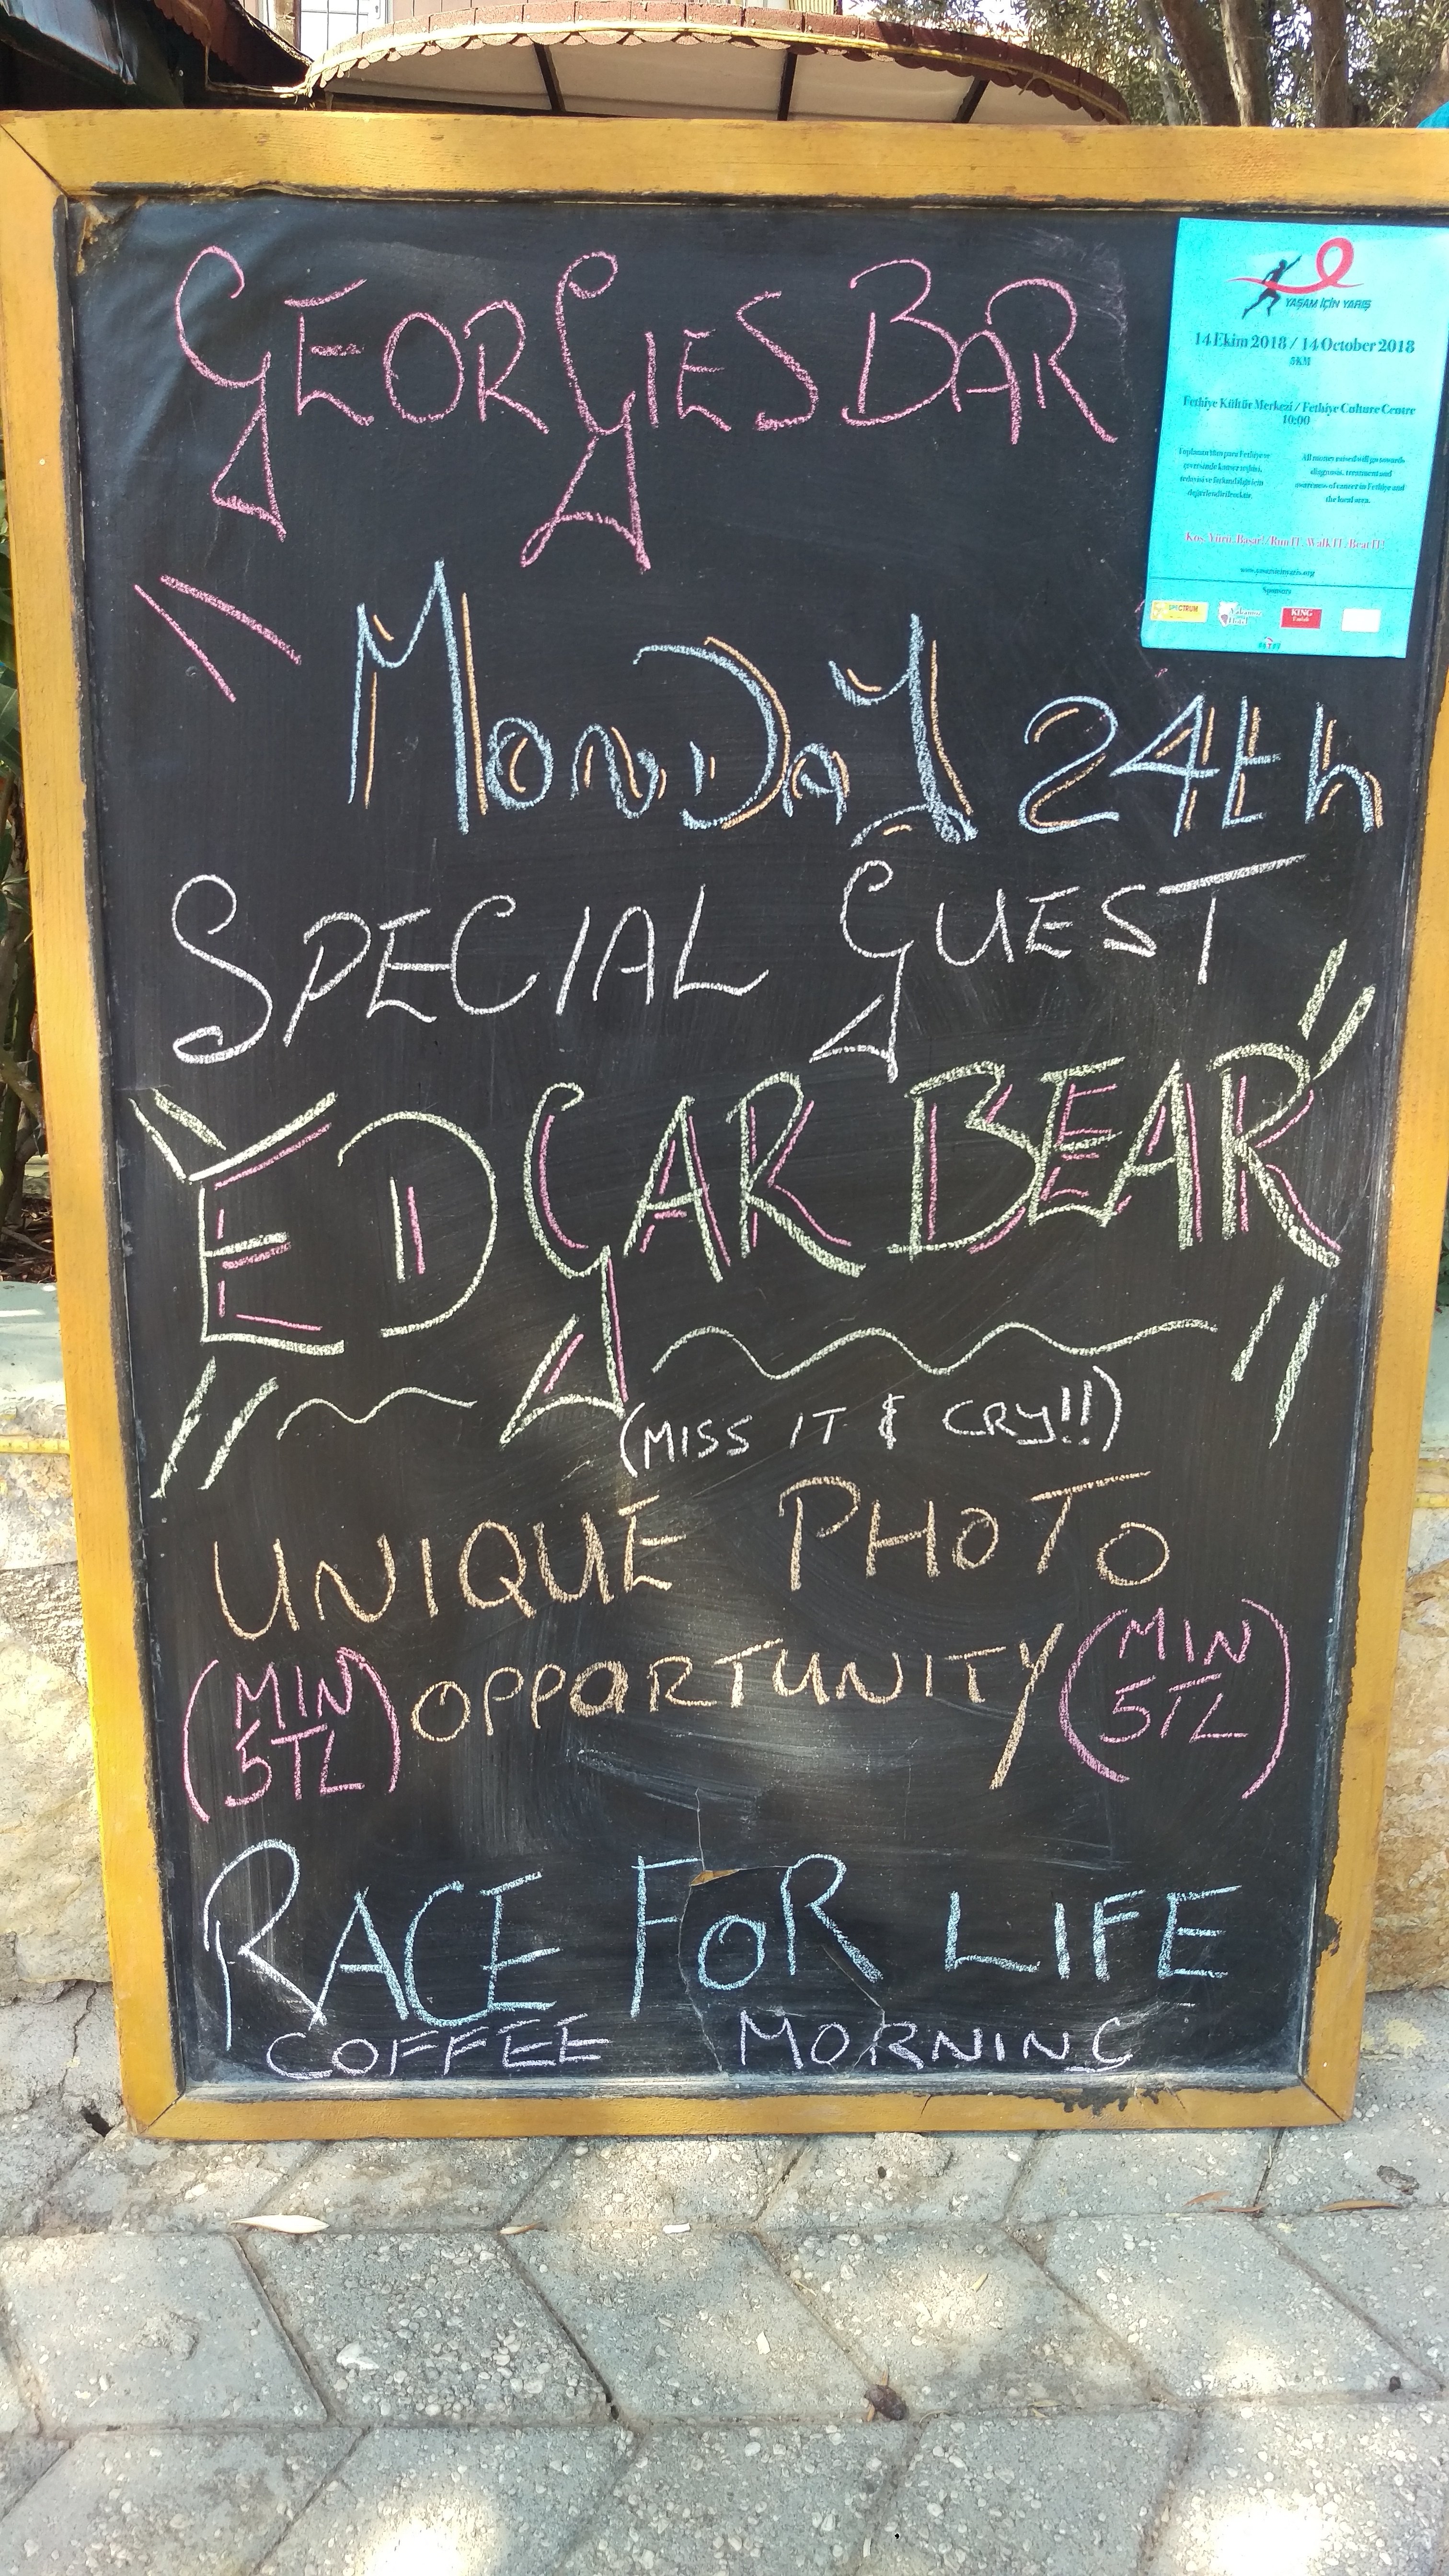 GEORGIES BAR
MONDAY 24th
SPECIAL GUEST
EDGAR BEAR
(MISS IT & CRY!!)
UNIQUE PHOTO
(MIN 5TL) OPPORTUNITY (MIN 5TL)
RACE FOR LIFE
COFFEE MORNING
YAŞAM İÇİN YARIŞ
14 Ekim 2018 / 14 October 2018
5KM
Fethiye Kültür Merkezi / Fethiye Culture Centre
10:00
Toplanan tüm para Fethiye ve
çevresinde kanser teşhisi,
tedavisi ve farkındalığı için
değerlendirilecektir.
All money raised will go towards
diagnosis, treatment and
awareness of cancer in Fethiye and
the local area.
Koş, Yürü, Başar! / Run IT, Walk IT, Beat IT!
www.yasamicinyaris.org
Sponsors
SPECTRUM
Hotel
KING